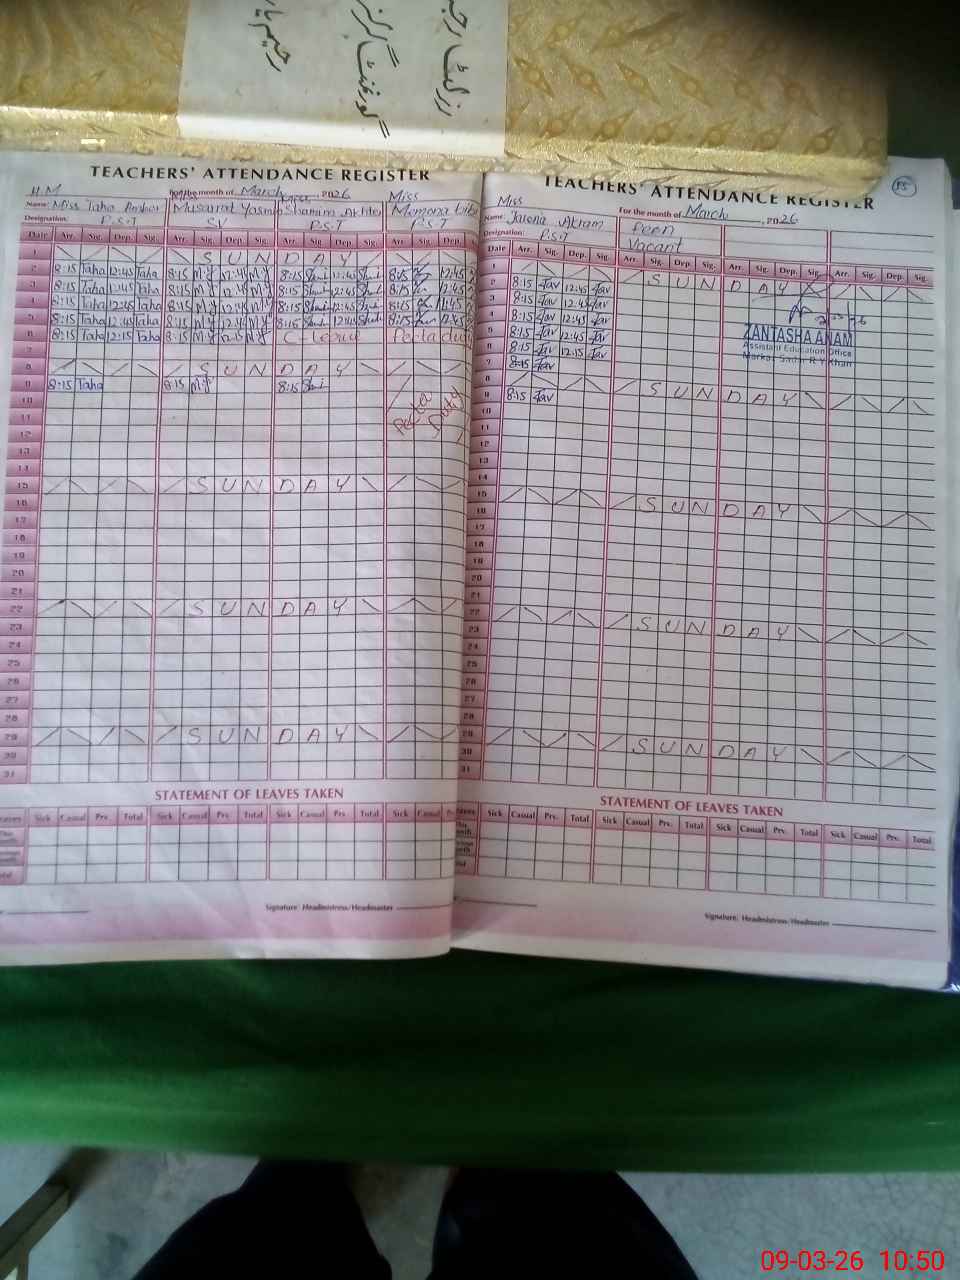 رحیم یار
گورنمنٹ گرلز
TEACHERS' ATTENDANCE REGISTER
H.M
For the month of March, 2026
Miss
Name: Miss Taha Amber
Musarrat Yasmin
Shamim Akhter
Memona Bibi
Designation: P.S.T
P.S.T
P.S.T
Date Arr. Sig. Dep. Sig. Arr. Sig. Dep. Sig. Arr. Sig. Dep. Sig. Arr. Sig. Dep.
1 S U N D A Y
2 8:15 Taha 12:45 Taha 8:15 M.Y 12:45 M.Y 8:15 12:45 8:15 12:45
3 8:15 Taha 12:45 Taha 8:15 M.Y 12:45 M.Y 8:15 12:45 8:15 12:45
4 8:15 Taha 12:45 Taha 8:15 M.Y 12:45 M.Y 8:15 12:45 8:15 12:45
5 8:15 Taha 12:45 Taha 8:15 M.Y 12:45 M.Y 8:15 12:45 8:15 12:45
6 8:15 Taha 12:15 Taha 8:15 M.Y M.Y C-leave
7
8 S U N D A Y
9 8:15 Taha 8:15 M.Y 8:15
10
11
12
13
14
15 S U N D A Y
16
17
18
19
20
21
22 S U N D A Y
23
24
25
26
27
28
29 S U N D A Y
30
31
STATEMENT OF LEAVES TAKEN
Sick Casual Prv. Total Sick Casual Prv. Total Sick Casual Prv. Total Sick Casual
Signature: Headmistress/Headmaster
TEACHERS' ATTENDANCE REGISTER
15
Miss
For the month of March, 2026
Name: Javeria Akram
Peon
Designation: P.S.T
Vacant
Date Arr. Sig. Dep. Sig. Arr. Sig. Dep. Sig. Arr. Sig. Dep. Sig. Arr. Sig. Dep. Sig.
1 S U N D A Y
2 8:15 Jav 12:45 Jav
3 8:15 Jav 12:45 Jav
4 8:15 Jav 12:45 Jav
5 8:15 Jav 12:45 Jav
6 8:15 Jav 12:15 Jav
7 8:15 Jav
8 S U N D A Y
9 8:15 Jav
ZANTASHA ANAM
Assistant Education Office
Markaz Sadar R Y Khan
10
11
12
13
14
15 S U N D A Y
16
17
18
19
20
21
22 S U N D A Y
23
24
25
26
27
28
29 S U N D A Y
30
31
STATEMENT OF LEAVES TAKEN
Sick Casual Prv. Total Sick Casual Prv. Total Sick Casual Prv. Total Sick Casual Prv. Total
Signature: Headmistress/Headmaster
09-03-26 10:50